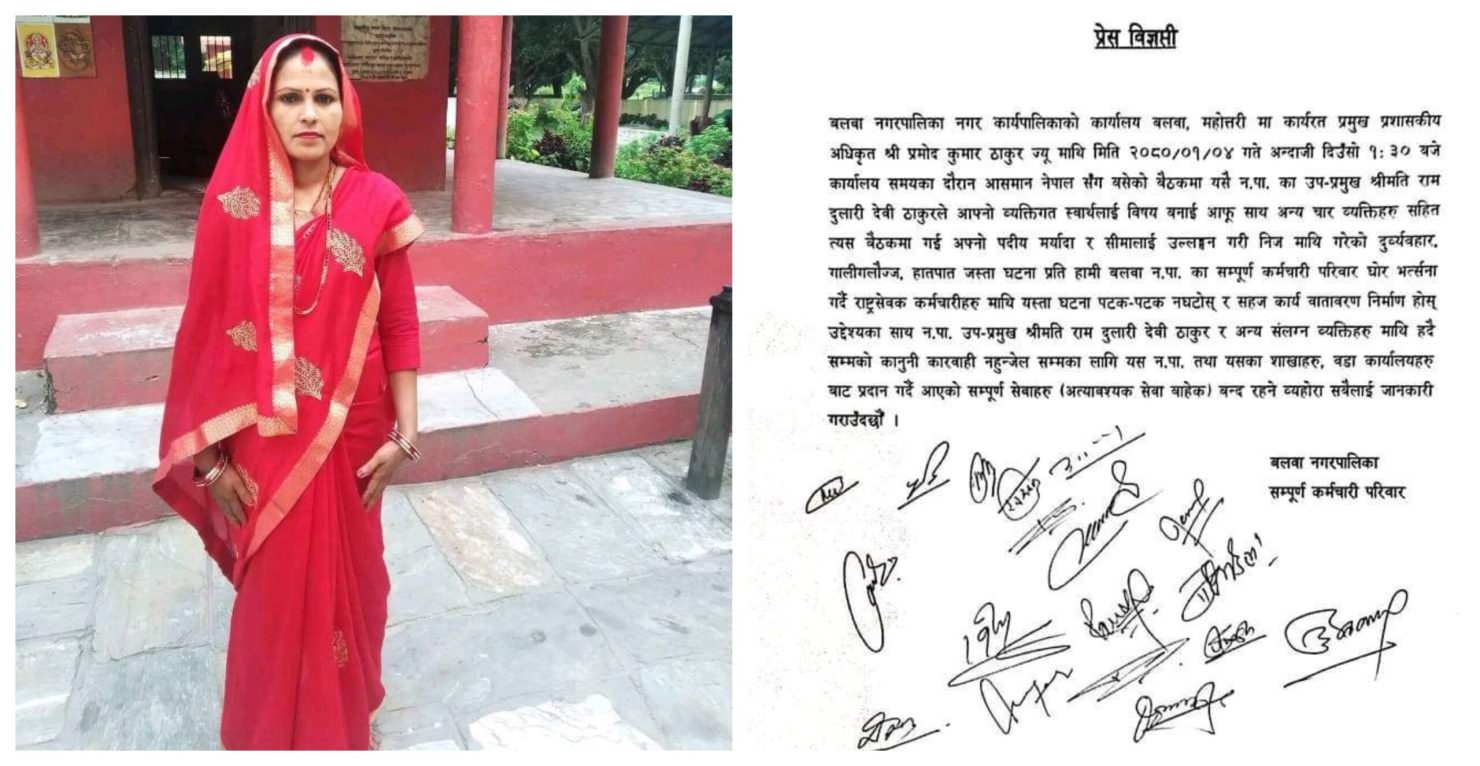 प्रेस विज्ञप्ती
बलवा नगरपालिका नगर कार्यपालिकाको कार्यालय बलवा, महोत्तरी मा कार्यरत प्रमुख प्रशासकीय
अधिकृत श्री प्रमोद कुमार ठाकुर ज्यू माथि मिति २०८०/०१/०४ गते अन्दाजी दिउँसो १:३० बजे
कार्यालय समयका दौरान आसमान नेपाल संग बसेको बैठकमा यसै न.पा. का उप-प्रमुख श्रीमति राम
दुलारी देवी ठाकुरले आफ्नो व्यक्तिगत स्वार्थलाई विषय बनाई आफू साथ अन्य चार व्यक्तिहरु सहित
त्यस बैठकमा गई अपनो पदीय मर्यादा र सीमालाई उल्लङ्घन गरी निज माथि गरेको दुर्व्यवहार,
गालीगलौज्ज, हातपात जस्ता घटना प्रति हामी बलवा न.पा. का सम्पूर्ण कर्मचारी परिवार घोर भर्त्सना
गर्दै राष्ट्रसेवक कर्मचारीहरु माथि यस्ता घटना पटक-पटक नघटोस् र सहज कार्य वातावरण निर्माण होस्
उद्देश्यका साथ न.पा. उप-प्रमुख श्रीमति राम दुलारी देवी ठाकुर र अन्य संलग्न व्यक्तिहरु माथि हदै
सम्मको कानुनी कारवाही नहुन्जेल सम्मका लागि यस न.पा. तथा यसका शाखाहरु, वडा कार्यालयहरु
बाट प्रदान गर्दै आएको सम्पूर्ण सेवाहरु (अत्यावश्यक सेवा बाहेक) बन्द रहने व्यहोरा सबैलाई जानकारी
गराउँदछौं ।
बलवा नगरपालिका
सम्पूर्ण कर्मचारी परिवार